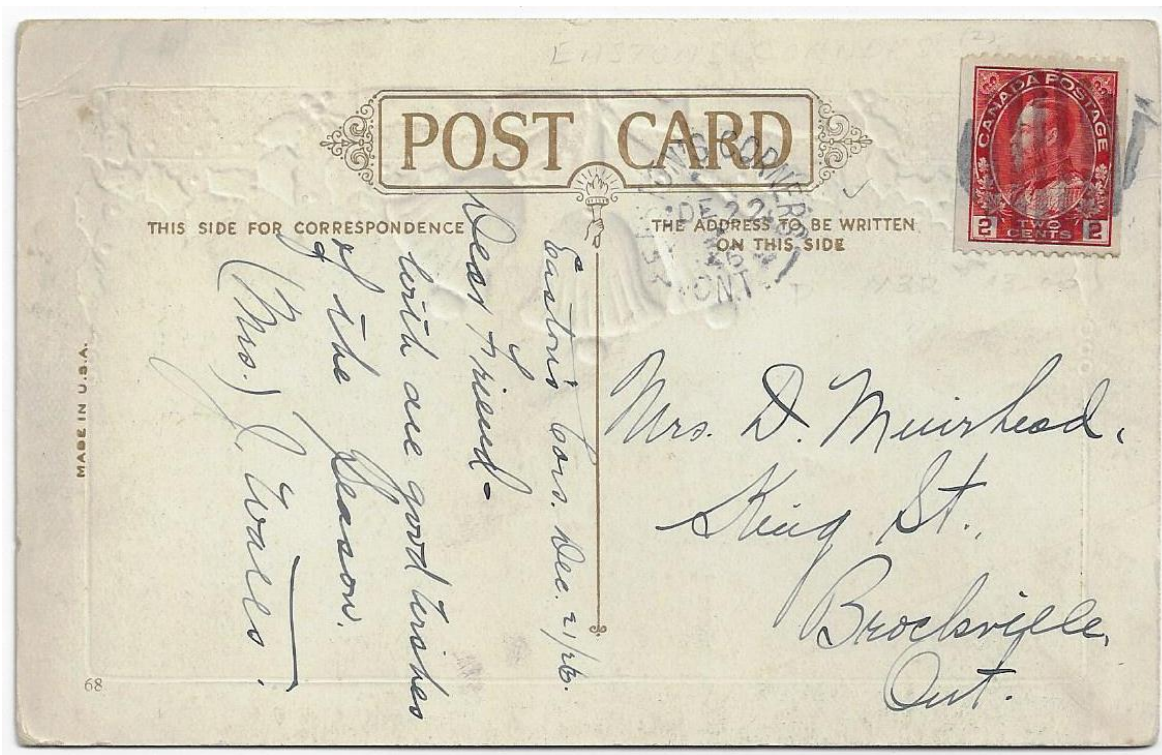 EASTON'S CORNERS
POST CARD
THIS SIDE FOR CORRESPONDENCE
THE ADDRESS TO BE WRITTEN
ON THIS SIDE
CANADA POSTAGE
2 TWO CENTS 2
CORNERS
DE 22
26
ONT
Easton's Cors. Dec. 21/26.
Dear Friend-
With all good wishes
of the Season.
(Mrs.) J.
Mrs. D. Muirhead,
King St.
Brockville,
Ont.
MADE IN U.S.A.
68